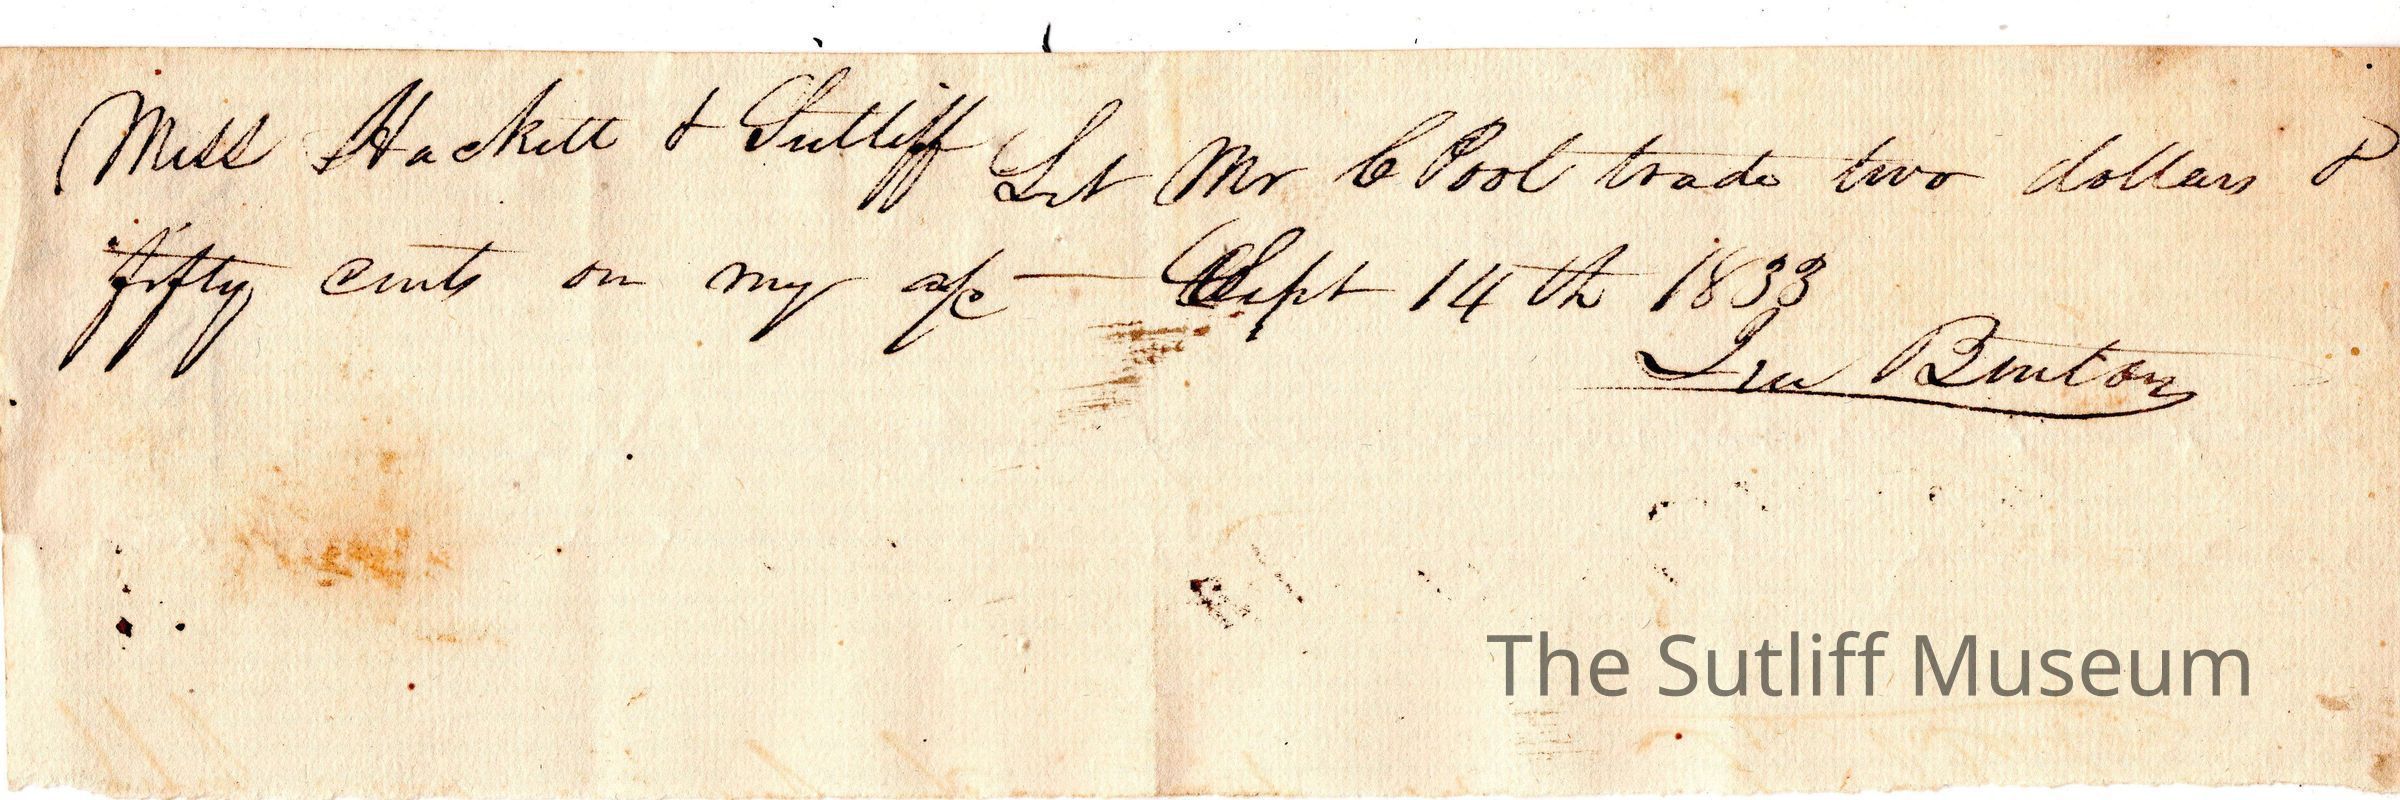 Mess Hackett & Sutliff Let Mr C Pool trade two dollars &
fifty cents on my a/c — Sept 14th 1833
Ira Benton
The Sutliff Museum